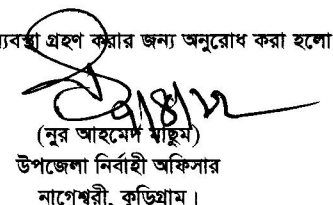 ব্যবস্থা গ্রহণ করার জন্য অনুরোধ করা হলো
(নুর আহমেদ মাছুম)
উপজেলা নির্বাহী অফিসার
নাগেশ্বরী, কুড়িগ্রাম।